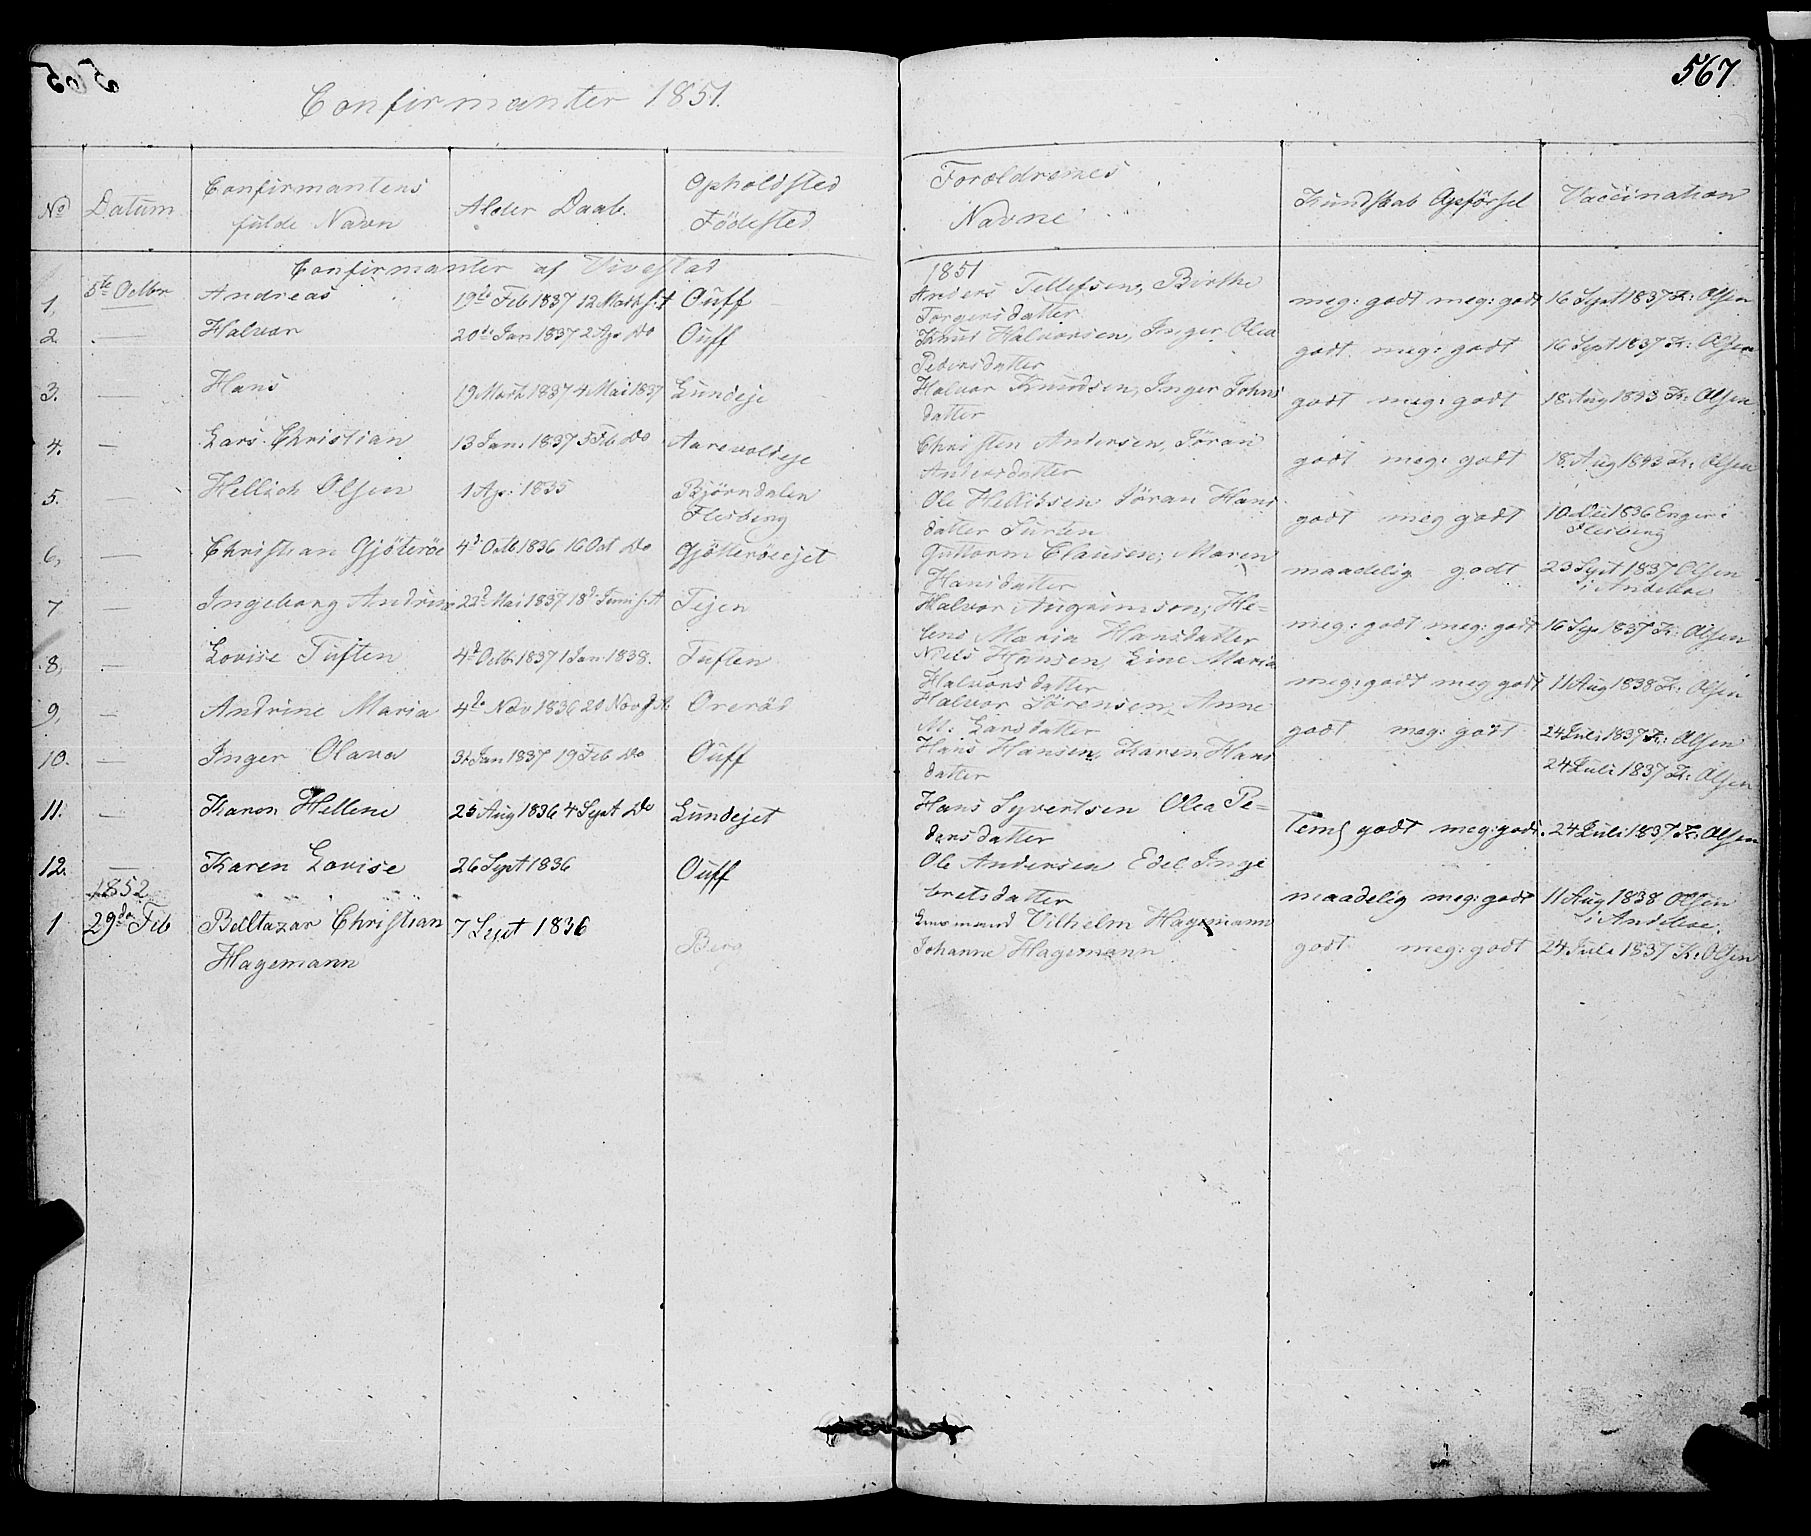 567
Confirmanter 1851.
No Datum Confirmantens fulde Navn Alder Daab. Opholdsted Födested Forældrenes Navne Kundskab Opförsel Vaccination
Confirmanter af Vivestad 1851
1, 5te Octbr Andreas 19de Feb 1837 12 Marts s.A Ouff Anders Tellefsen, Birthe meg: godt meg: godt 16 Sept 1837 K: Olsen
Torgersdatter
2. — Halvor 20de Jan 1837 2 Apr Do Ouff Knud Halvorsen, Inger Olea godt meg: godt 16 Sept 1837 K: Olsen
Pedersdatter
3. — Hans 19 Marts 1837 4 Mai 1837 Lundeje Halvor Knudsen, Inger Johns godt meg: godt 18 Aug 1843 K: Olsen
datter
4. — Lars Christian 13 Jan: 1837 5 Feb Do Aarevoldeje Christen Andersen, Söran godt meg: godt 18 Aug 1843 K: Olsen
Andersdatter
5. — Hellich Olsen 1 Apr: 1835 Björndalen Ole Helliksen Söran Hans godt meg godt 10 1836 Enger i
Flesberg datter Flesberg
6, — Christian Gjöteröe 4de Octb 1836 16 Oct Do Gjötteröeejet Guttorm Clausen; Maren maadelig godt 23 Sept 1837 Olsen
Hansdatter i Andeboe
7 — Ingeborg Andrine 22de Mai 1837 18de Juni s.A Tejen Halvor; He= meg: godt meg: godt 16 Sep 1837 K: Olsen
lene Maria Hansdatter
8, — Lovise Tuften 4de Octbr 1837 1 Jan: 1838. Tuften Niels Hansen, Line Maria meg: godt meg godt 11 Aug 1838 K: Olsen
Halvorsdatter
9, — Andrine Maria 4de Nov 1836 20 Nov s.A. Oreröd Halvor Sörensen, Anne godt meg: godt 24 Juli 1837 K: Olsen
M. Larsdatter
10. — Inger Olava 31 Jan 1837 19 Feb Do Ouff Hans Hansen, Karen Hans 24 Juli 1837 K: Olsen
datter
11. — Karen Hellene 25 Aug 1836 4 Sept Do Lundejet Hans Syvertsen Olea Pe= Tem godt meg: godt. 24 Juli 1837 K: Olsen
dersdatter
12. — Karen Lovise 26 Sept 1836 Ouff Ole Andersen Edel Inge maadelig meg: godt 11 Aug 1838 Olsen
bretsdatter i Andeboe.
1852
1 29de Feb Belltazar Christian 7 Sept 1836 Berg Vilhelm Hagemann godt meg: godt 24 Juli 1837 K: Olsen
Hagemann Johanne Hagemann